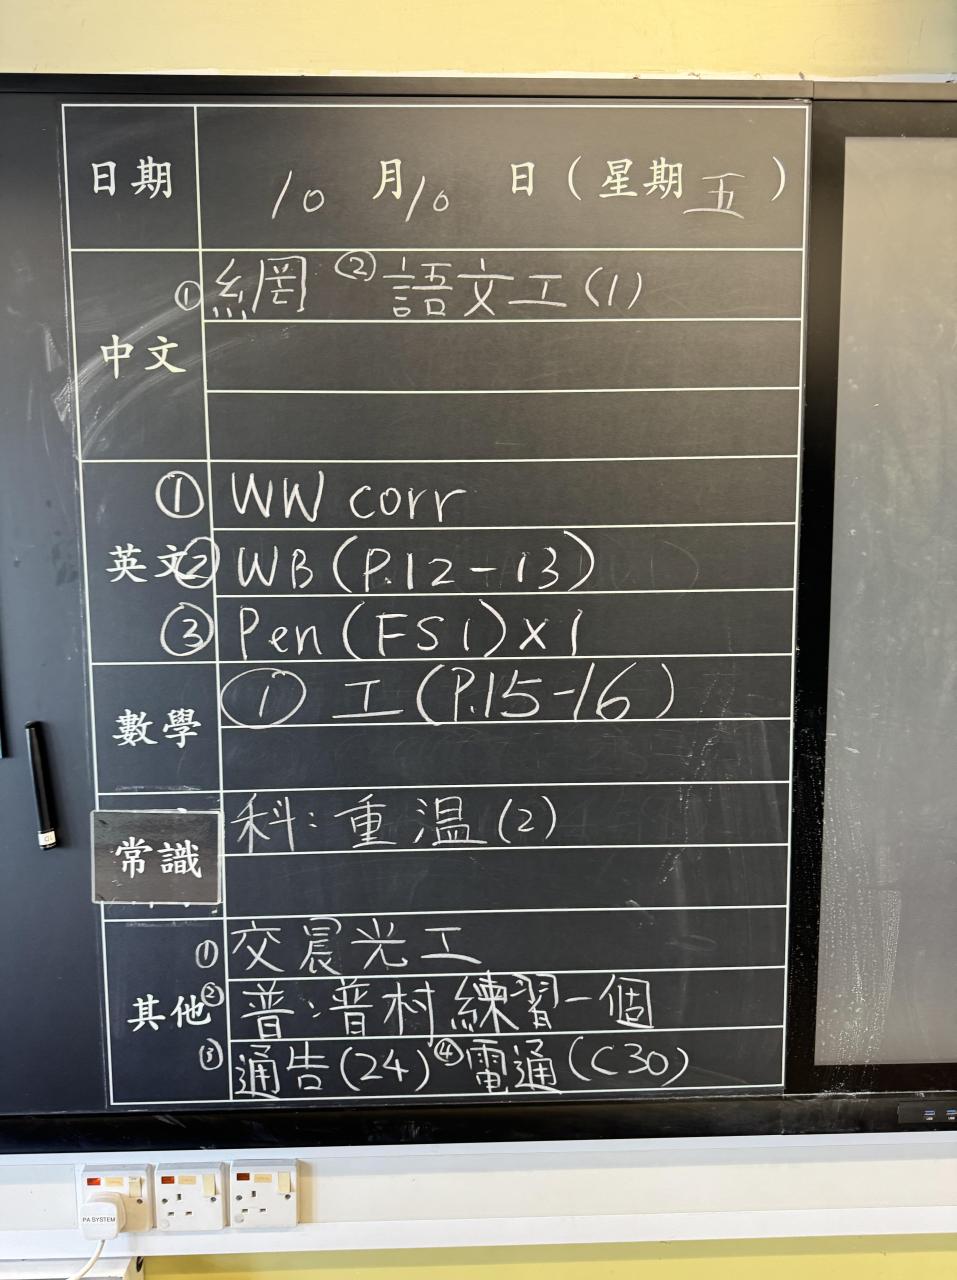 日期 10 月 10 日（星期五）
① 網 ② 語文工(1)
中文
① WW corr
英文 ② WB(P.12-13)
③ Pen(FS1)x1
① 工(P.15-16)
數學
科:重溫(2)
常識
① 交晨光工
其他 ② 普:普村練習一個
③ 通告(24) ④ 電通(C30)
PA SYSTEM